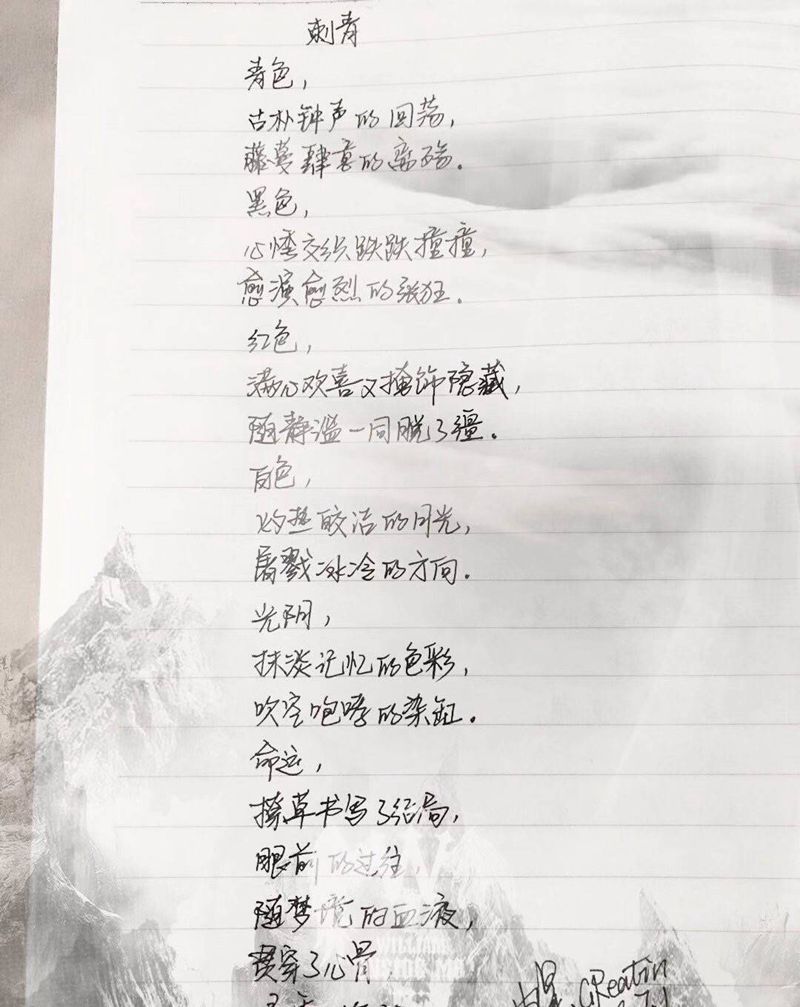 刺青
青色，
古朴钟声的回荡，
藤蔓肆意的离殇。
黑色，
心怪交织跌跌撞撞，
愈演愈烈的张狂。
红色，
满心欢喜又掩饰隐藏，
随静谧一同脱了缰。
白色，
灼热皎洁的月光，
屠戮冰冷的方向。
光阴，
抹淡记忆的色彩，
吹空咆哮的染缸。
命运，
撩草书写了结局，
眼前的过往，
随梦境的血液，
贯穿了心骨
CReatin